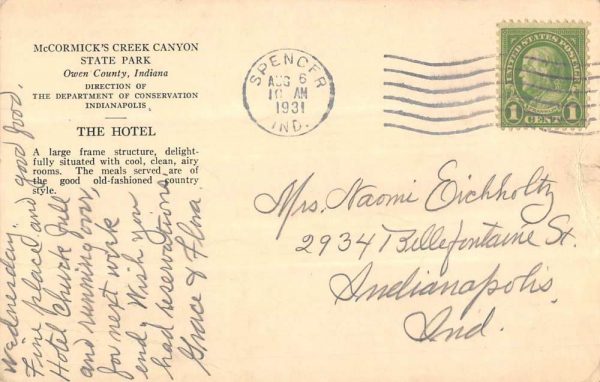 McCORMICK'S CREEK CANYON
STATE PARK
Owen County, Indiana
DIRECTION OF
THE DEPARTMENT OF CONSERVATION
INDIANAPOLIS
THE HOTEL
A large frame structure, delight-
fully situated with cool, clean, airy
rooms. The meals served are of
the good old-fashioned country
style.
SPENCER
AUG 6
10 AM
1931
IND.
UNITED STATES POSTAGE
1 CENT 1
Mrs. Naomi Eichholtz
2934 Bellefontaine St.
Indianapolis
Ind.
Wednesday.
Fine place and good food.
Hotel chuck full
and running over,
for next work
end. Wish you
had reservations.
Grace & Flora.